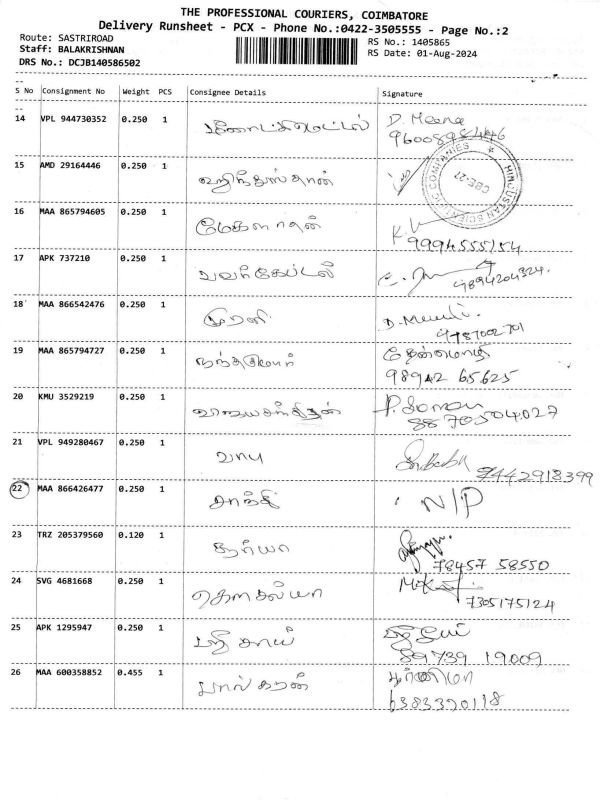 THE PROFESSIONAL COURIERS, COIMBATORE
Delivery Runsheet - PCX - Phone No.:0422-3505555 - Page No.:2
Route: SASTRIROAD
RS No.: 1405865
Staff: BALAKRISHNAN
RS Date: 01-Aug-2024
DRS No.: DCJB140586502
S No Consignment No Weight PCS Consignee Details Signature
14 VPL 944730352 0.250 1 D. Meena
15 AMD 29164446 0.250 1
HINDUSTAN SCIENTIFIC COMPANIES
CBE-27
16 MAA 865794605 0.250 1 மேகனாதன்
9994555154
17 APK 737210 0.250 1
9894204324.
18 MAA 866542476 0.250 1 முரளி
9787002701
19 MAA 865794727 0.250 1 நந்தகுமார் தேன்மொழி
98942 65625
20 KMU 3529219 0.250 1
8870504027
21 VPL 949280467 0.250 1 பாபு
9442918399
22 MAA 866426477 0.250 1 சாந்தி N/P
23 TRZ 205379560 0.120 1 சூர்யா
78457 58550
24 SVG 4681668 0.250 1 கௌசல்யா
7305175124
25 APK 1295947 0.250 1
89739 19009
26 MAA 600358852 0.455 1
6383320118